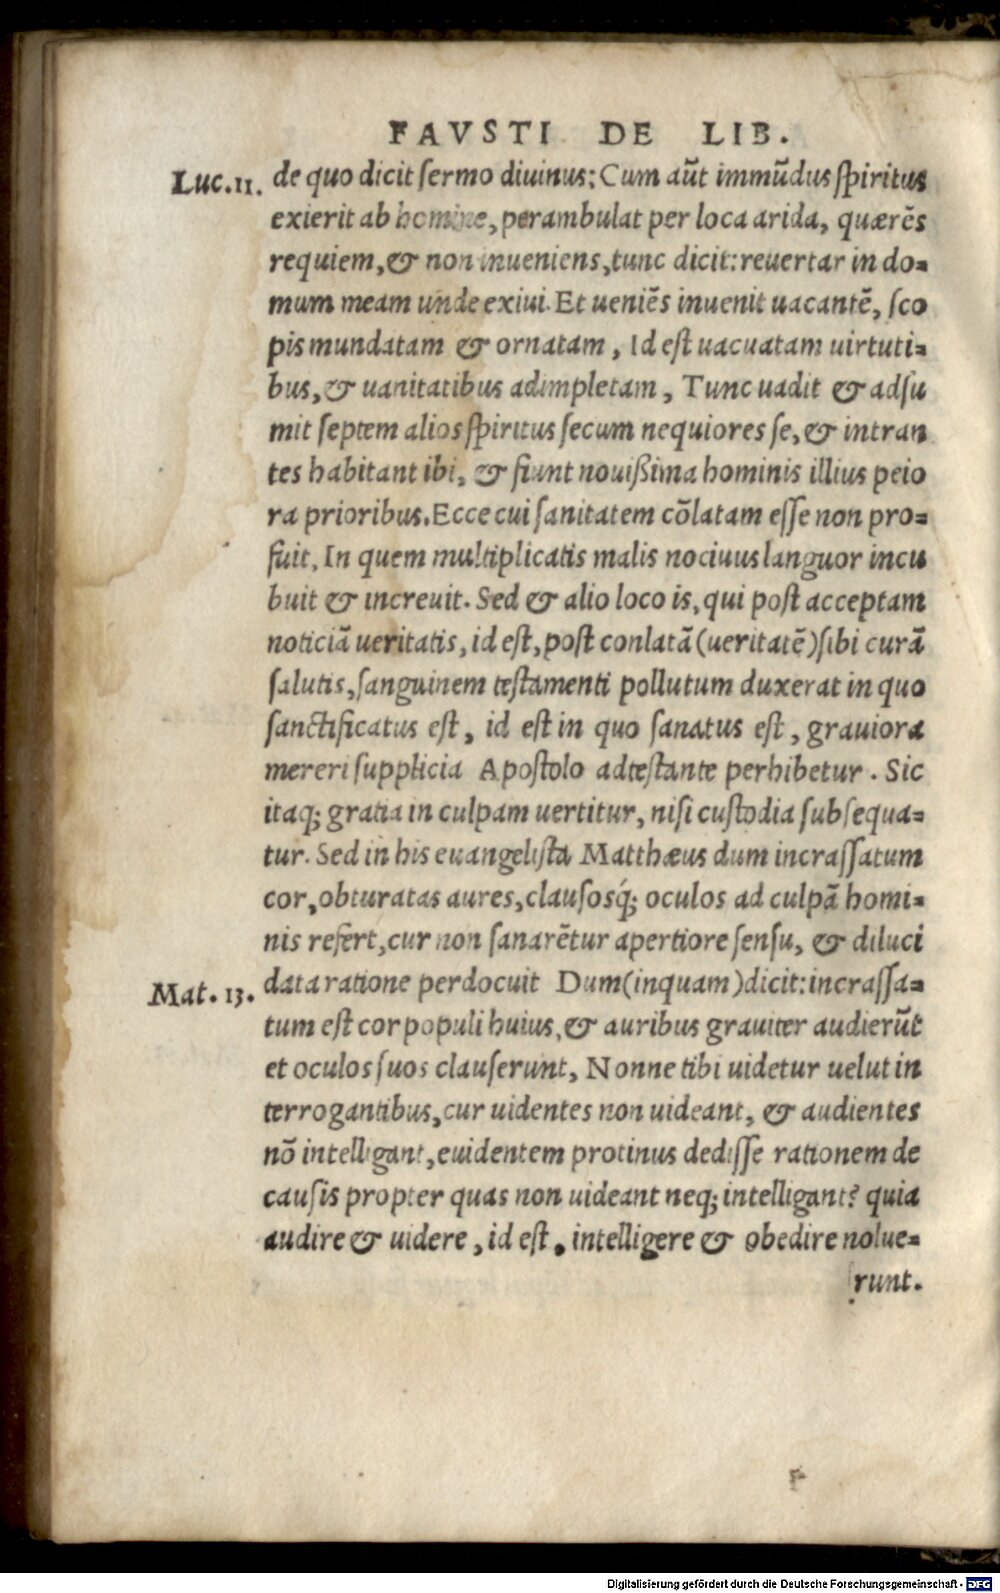 FAVSTI DE LIB.
Luc.11. de quo dicit sermo diuinus: Cum aũt immũdus spiritus
exierit ab homine, perambulat per loca arida, quærẽs
requiem, & non inueniens, tunc dicit: reuertar in do=
mum meam unde exiui. Et ueniẽs inuenit uacantẽ, sco
pis mundatam & ornatam, Id est uacuatam uirtuti=
bus, & uanitatibus adimpletam, Tunc uadit & adsu
mit septem alios spiritus secum nequiores se, & intran
tes habitant ibi, & fiunt nouißima hominis illius peio
ra prioribus. Ecce cui sanitatem cõlatam esse non pro=
fuit, In quem multiplicatis malis nociuus languor incu
buit & increuit. Sed & alio loco is, qui post acceptam
noticiã ueritatis, id est, post conlatã (ueritatẽ) sibi curã
salutis, sanguinem testamenti pollutum duxerat in quo
sanctificatus est, id est in quo sanatus est, grauiora
mereri supplicia Apostolo adtestante perhibetur. Sic
itaq; gratia in culpam uertitur, nisi custodia subsequa=
tur. Sed in his euangelista Matthæus dum incrassatum
cor, obturatas aures, clausosq́; oculos ad culpã homi=
nis refert, cur non sanarẽtur apertiore sensu, & diluci
Mat. 13. data ratione perdocuit Dum (inquam) dicit: incrassa=
tum est cor populi huius, & auribus grauiter audierũt
et oculos suos clauserunt, Nonne tibi uidetur uelut in
terrogantibus, cur uidentes non uideant, & audientes
nõ intelligant, euidentem protinus dedisse rationem de
causis propter quas non uideant neq; intelligant? quia
audire & uidere, id est, intelligere & obedire nolue=
runt.
Digitalisierung gefördert durch die Deutsche Forschungsgemeinschaft - DFG